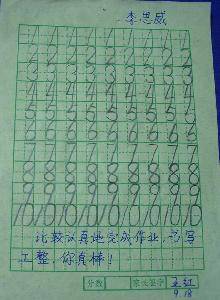 李思威
1 1 1 1 1 1 1 1 1
2 2 2 2 2 2 2 2 2
3 3 3 3 3 3 3 3 3
4 4 4 4 4 4 4 4 4
5 5 5 5 5 5 5 5 5
6 6 6 6 6 6 6 6 6
7 7 7 7 7 7 7 7 7
8 8 8 8 8 8 8 8 8
9 9 9 9 9 9 9 9 9
10 10 10 10 10 10 10 10 10
比较认真地完成作业,书写
工整,你真棒!
分数 家长签字 王红
9.18